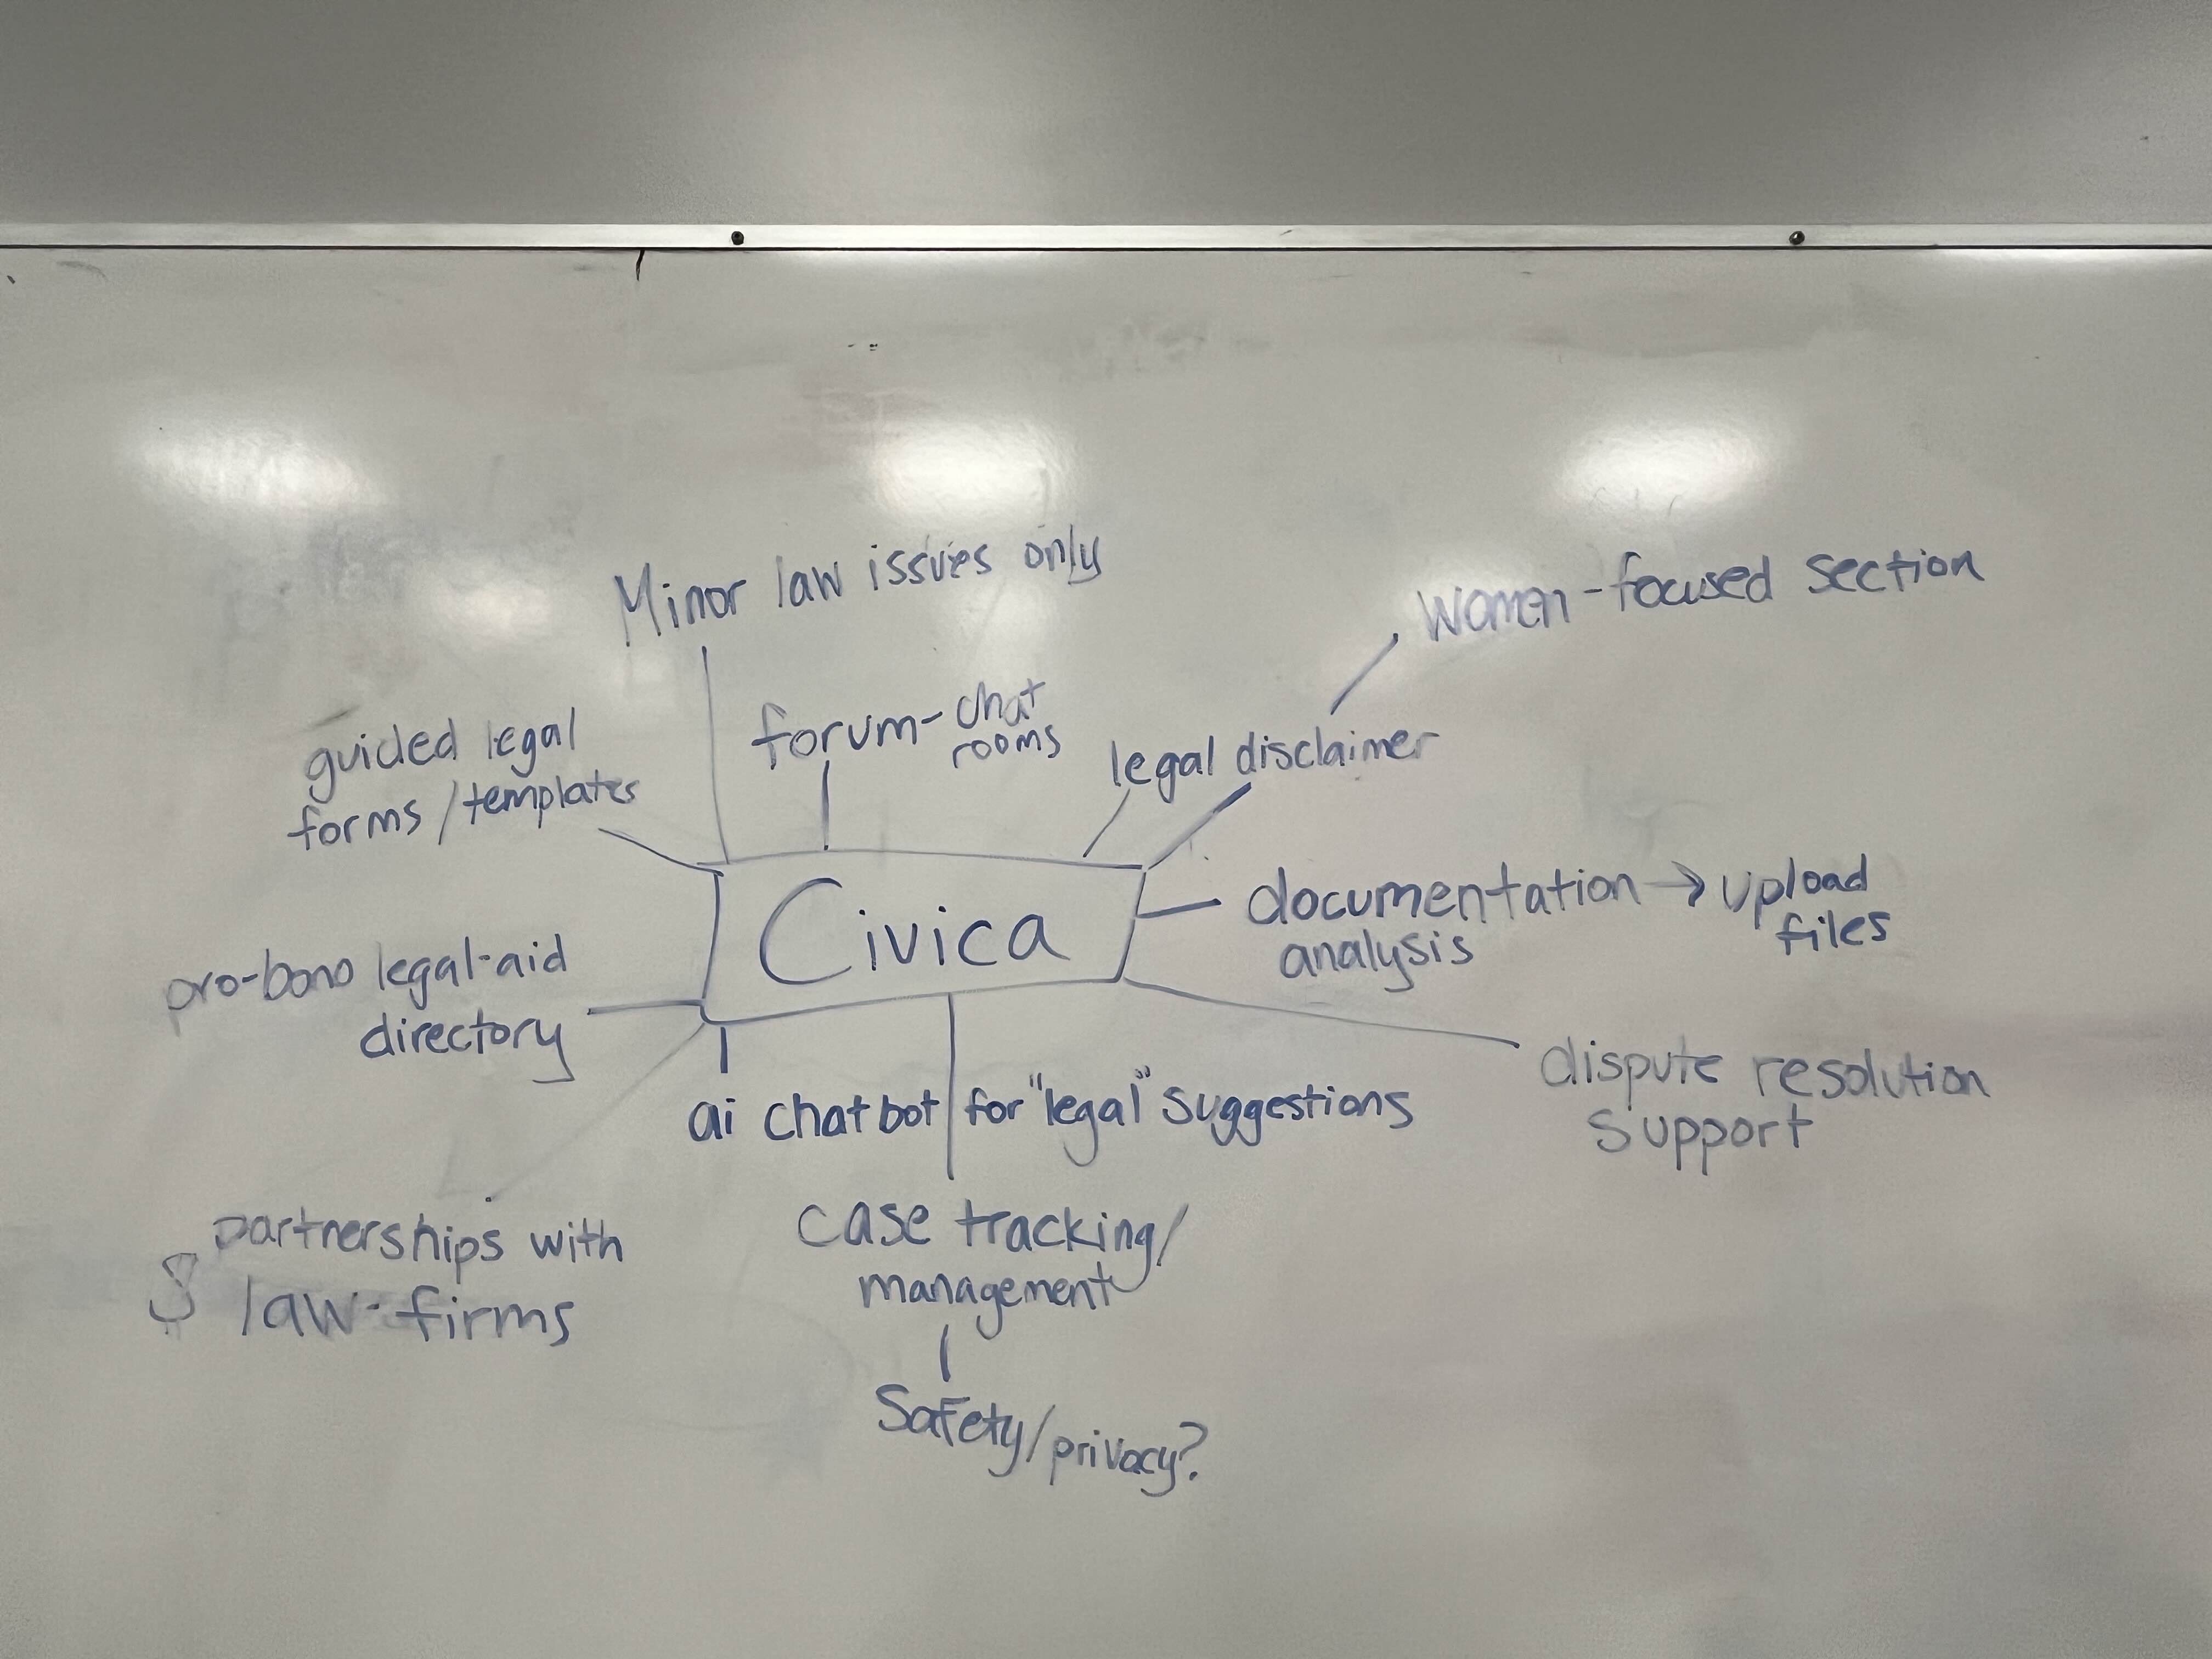 Minor law issues only
women-focused section
forum- chat
rooms
guided legal
forms/templates
legal disclaimer
Civica
documentation → upload
files
analysis
pro-bono legal-aid
directory
dispute resolution
support
ai chatbot for "legal" suggestions
partnerships with
$ law-firms
case tracking/
management
Safety/privacy?